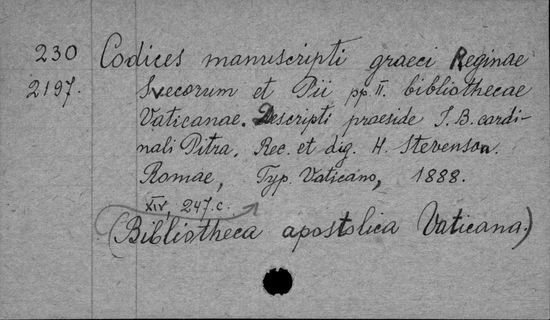 230 Codices manuscripti graeci Reginae
2197. Svecorum et Pii pp. II. bibliothecae
Vaticanae. Descripti praeside I. B. cardi-
nali Pitra. Rec. et dig. H. Stevenson.
Romae, Typ. Vaticano, 1888.
XIV, 247.c.
(Bibliotheca apostolica Vaticana.)